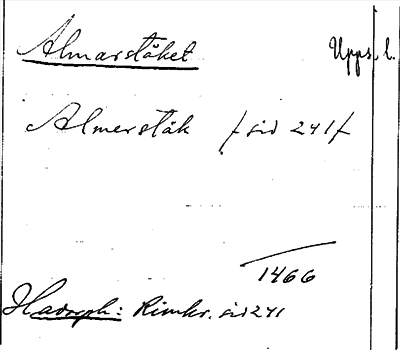 Almarstäket Upps. l.
Almerstäk / sid 241 /
1466
Hadorph: Rimkr. sid 241